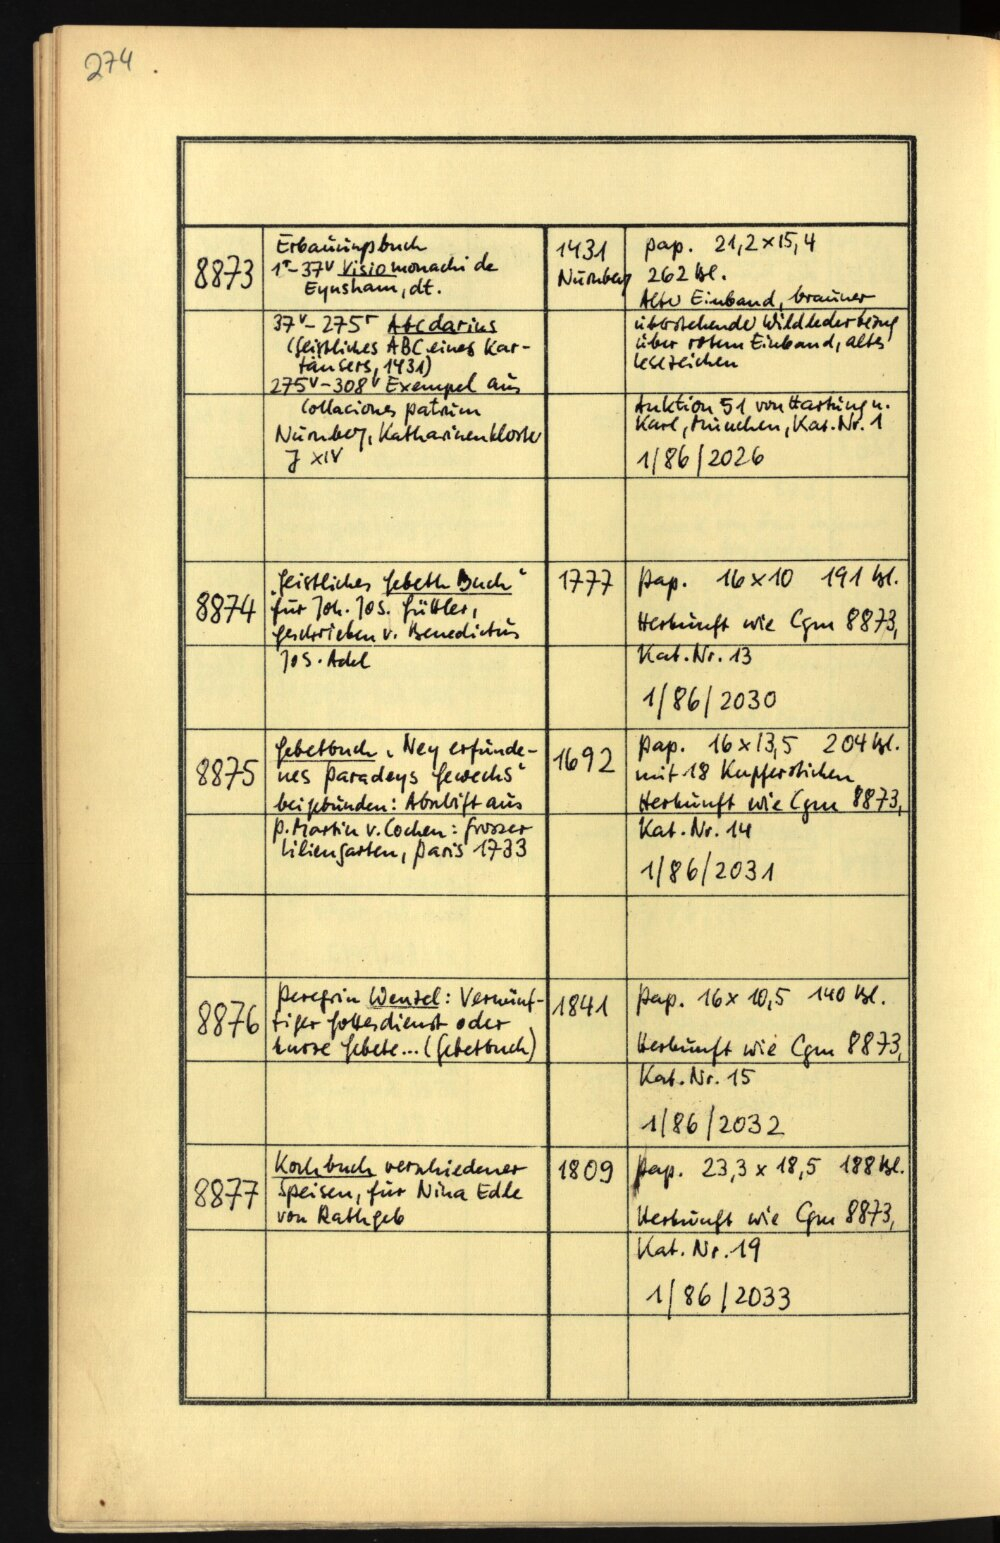 274
8873
Erbauungsbuch
1r-37v Visio monachi de
Eynsham, dt.
37v-275r Abcdarius
(Geistliches ABC eines Kar-
täusers, 1431)
275v-308v Exempel aus
Collaciones patrum
Nürnberg, Katharinenkloster
J XIV
1431
Nürnberg
Pap. 21,2x15,4
262 Bl.
Alter Einband, brauner
überstehender Wildlederbezug
über rotem Einband, altes
Lesezeichen
Auktion 51 von Hartung u.
Karl, München, Kat. Nr. 1
1/86/2026
8874
"Geistliches Gebeth Buch"
für Joh. Jos. Güttler,
geschrieben v. Benedictus
Jos. Adel
1777
Pap. 16x10 191 Bl.
Herkunft wie Cgm 8873,
Kat. Nr. 13
1/86/2030
8875
Gebetbuch, "Ney erfunde-
nes Paradeys Gewechs"
beigebunden: Abschift aus
P. Martin v. Cochen: Grosser
Liliengarten, Paris 1733
1692
Pap. 16x13,5 204 Bl.
mit 18 Kupferstichen
Herkunft wie Cgm 8873,
Kat. Nr. 14
1/86/2031
8876
Peregrin Wenzel: Vernünf-
tiger Gottesdienst oder
kurze Gebete... (Gebetbuch)
1841
Pap. 16x10,5 140 Bl.
Herkunft wie Cgm 8873,
Kat. Nr. 15
1/86/2032
8877
Kochbuch verschiedener
Speisen, für Nina Edle
von Rathgeb
1809
Pap. 23,3 x 18,5 188 Bl.
Herkunft wie Cgm 8873,
Kat. Nr. 19
1/86/2033